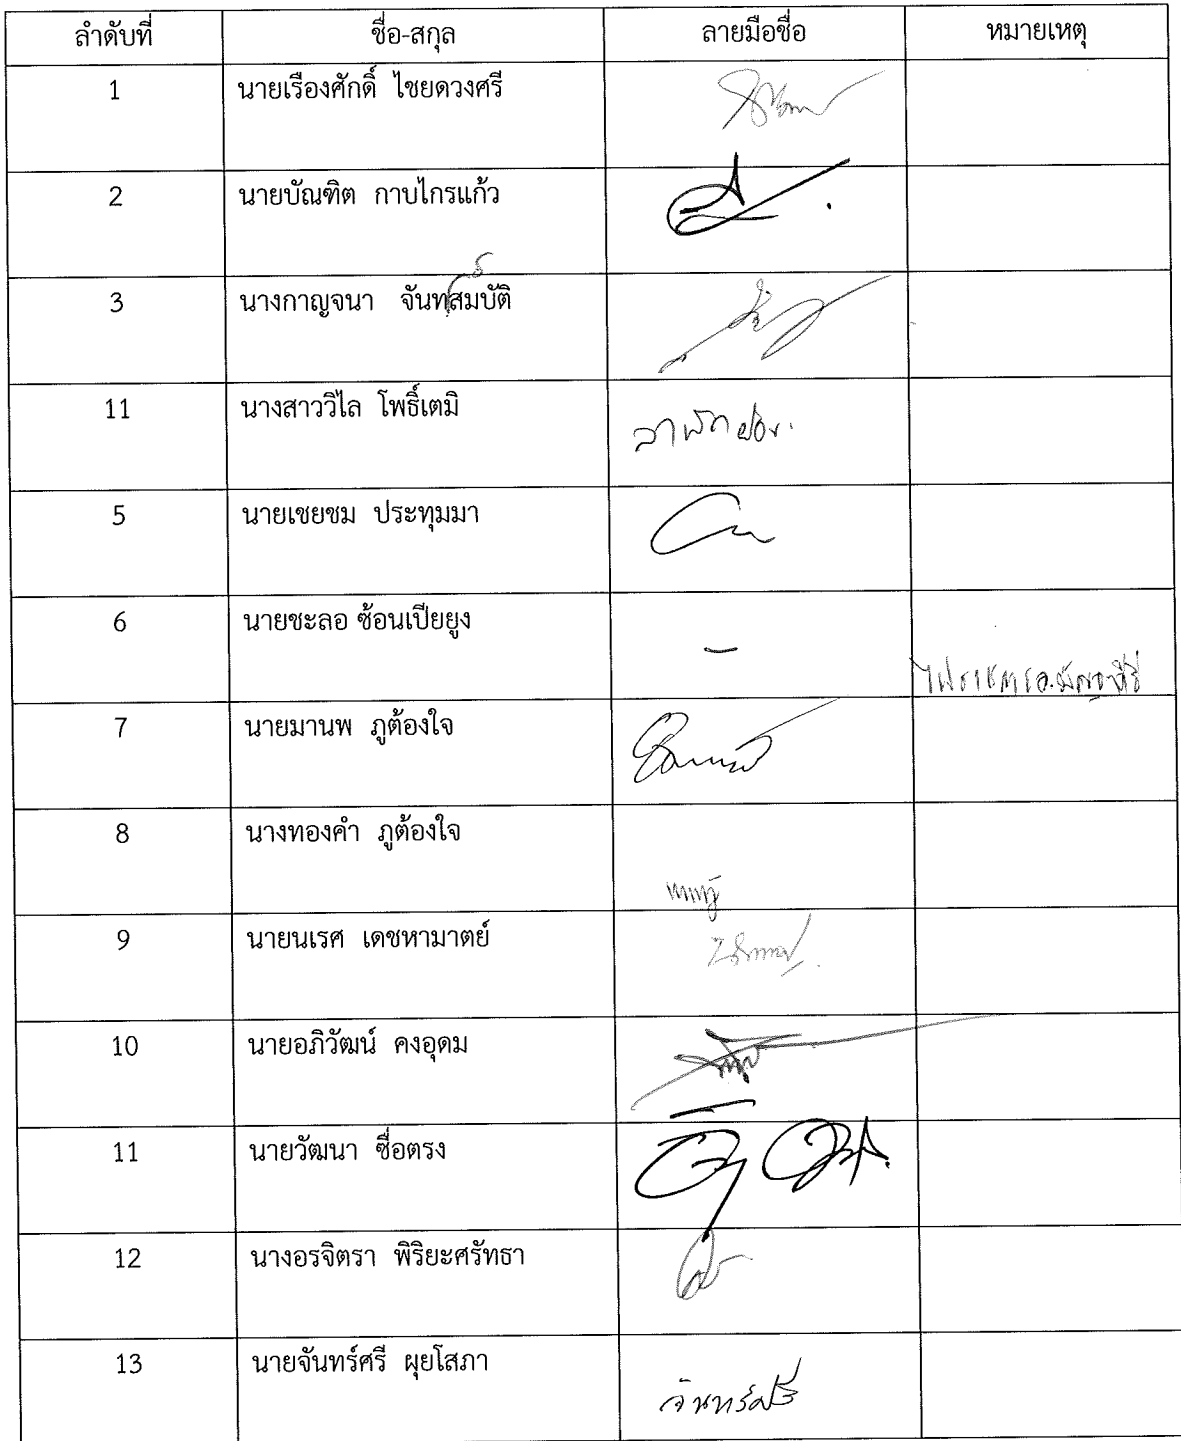 ลำดับที่ ชื่อ-สกุล ลายมือชื่อ หมายเหตุ
1 นายเรืองศักดิ์ ไชยดวงศรี
2 นายบัณฑิต กาบไกรแก้ว
3 นางกาญจนา จันทสมบัติ
11 นางสาววิไล โพธิ์เตมิ ลาพักผ่อน
5 นายเชยชม ประทุมมา
6 นายชะลอ ซ้อนเปียยูง -
7 นายมานพ ภูต้องใจ
8 นางทองคำ ภูต้องใจ
9 นายนเรศ เดชหามาตย์
10 นายอภิวัฒน์ คงอุดม
11 นายวัฒนา ซื่อตรง
12 นางอรจิตรา พิริยะศรัทธา
13 นายจันทร์ศรี ผุยโสภา จันทร์ศรี